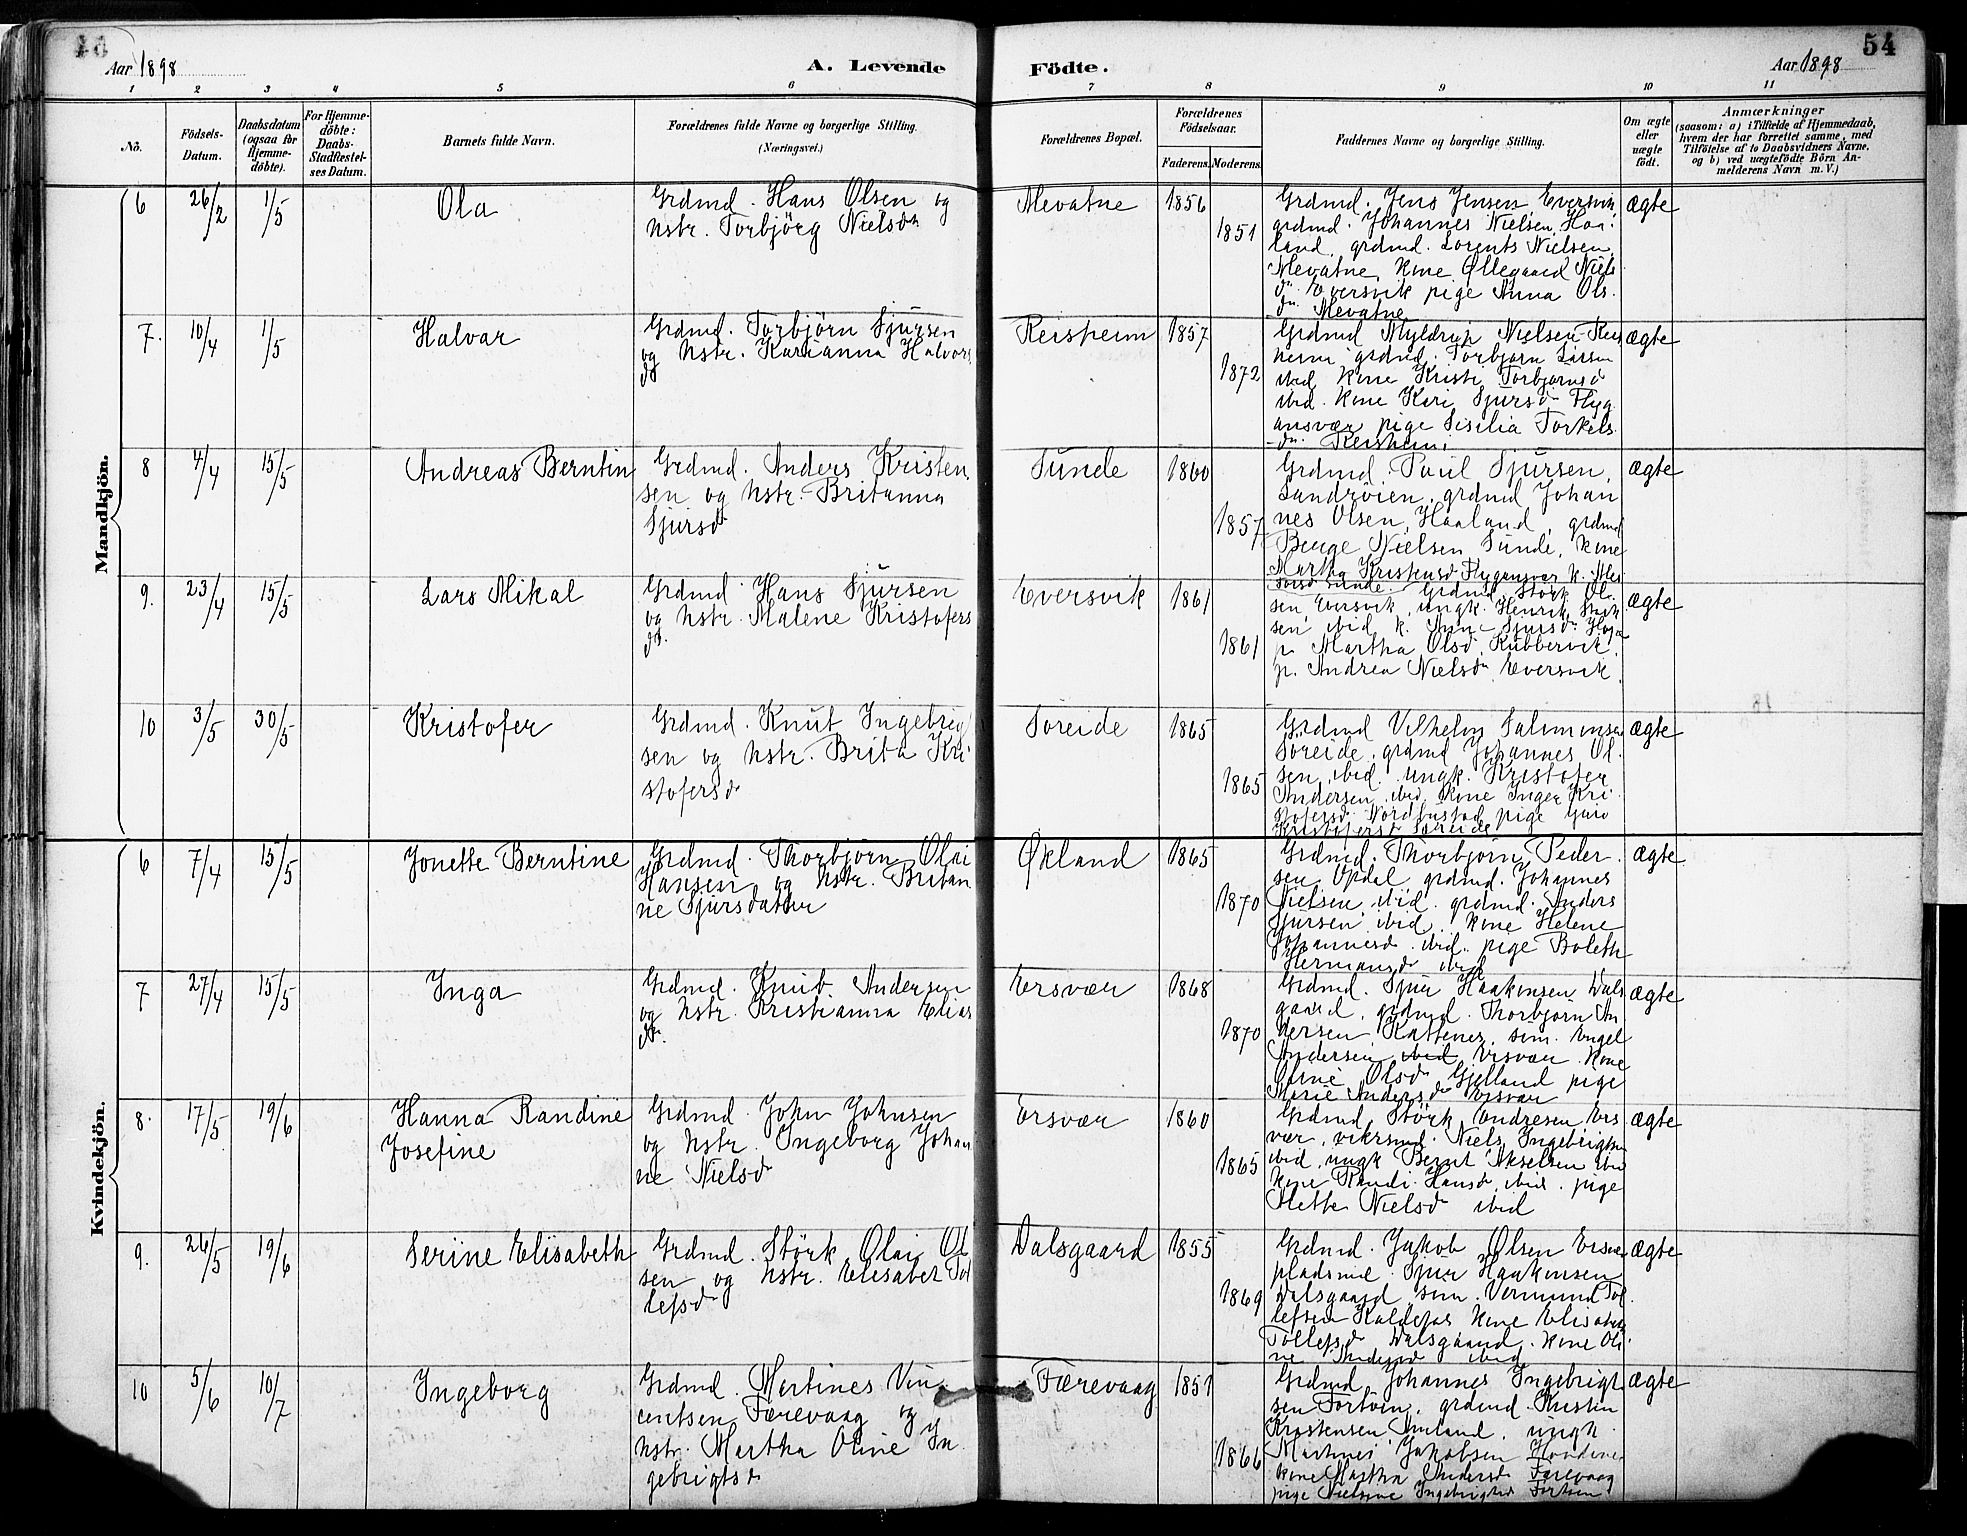 Aar 1898
A. Levende
Födte.
54
Aar 1898
1 2 3 4 5 6 7 8 9 10 11
No.
Födsels-
Datum.
Daabsdatum
(ogsaa for
Hjemme-
döbte).
For Hjemme-
döbte:
Daabs-
Stadfæstel-
ses Datum.
Barnets fulde Navn.
Forældrenes fulde Navne og borgerlige Stilling.
(Næringsvei.)
Forældrenes Bopæl.
Forældrenes
Födselsaar.
Faderens. Moderens.
Faddernes Navne og borgerlige Stilling.
Om ægte
eller
uægte
födt.
Anmærkninger
(saasom: a) i Tilfælde af Hjemmedaab,
hvem der har forrettet samme, med
Tilföielse af to Daabsvidners Navne.
og b) ved uægtefödte Börn An-
melderens Navn m. V.)
Mandkjön.
6 26/2 1/5 Ola
Grdmd. Hans Olsen og
hstr. Torbjörg Nielsdr
Mevatne 1856
1851
Grdmd. Jens Jensen Eversvik
grdmd. Johannes Nielsen, Haa-
land, grdmd. Lorents Nielsen
Mevatne, kone Øllegaard Niels
dr. Eversvik pige Anna Ols.
dr. Mevatne
ægte
7. 10/4 1/5 Halvar
Grdmd. Torbjörn Sjursen
og hstr. Karianna Halvors
dr
Reisheim 1857
1872
Grdmd Myldrup Nielsen Reis
heim grdmd. Torbjörn Larsen
ibid kone Kristi Torbjörnsd
ibid. kone Kari Sjursd Flyg
ansvær pige Sisilia Torkels
dr. Reisheim
ægte
8 4/4 15/5 Andreas Berntin
Grdmd. Anders Kristen
sen og hstr. Britanna
Sjursd
Sunde 1860
1857
Grdmd. Paul Sjursen,
Sandvöien, grdmd Johan
nes Olsen, Haaland, grdmd
Benge Nielsen Sunde, kone
Martha Kristensd Flygansvær k.
Sunde.
ægte
9. 23/4 15/5 Lars Mikal
Grdmd. Hans Sjursen
og hstr. Malene Kristofers
dr.
Eversvik 1861
1861
Grdmd. Störk Ol
sen Eversvik, ungk. Henrik Störk
sen ibid k. Sjursd
p. Martha Olsd. Rubbervik
p. Andrea Nielsdr Eversvik
ægte
10 3/5 30/5 Kristofer
Grdmd. Knut Ingebrig
sen og hstr. Brita Kri
stofersd
Söreide 1865
1865
Grdmd Vilhelm Salimonsen
Söreide, grdmd Johannes Ol.
sen ibid. ungk. Kristofer
Andersen ibid. kone Inger Kri
stofersd Nordhustad pige Guro
Kristofersd Söreide
ægte
Kvindekjön.
6 7/4 15/5 Jonette Berntine
Grdmd. Thorbjörn Olai
Hansen og hstr. Britan
ne Sjursdatter
Økland 1865
1870
Grdmd. Thorbjörn Peder
sen Opdal grdmd. Johannes
Nielsen ibid. grdmd. Anders
Sjursen ibid. kone Helene
Johannesd. ibid. pige Boleth
Hermansd ibid
ægte
7 27/4 15/5 Inga
Grdmd. Knut Andersen
og hstr. Kristianna Elias
dr.
Ersvær 1868
1870
Grdmd. Sjur Haakonsen Dals
gaard, grdmd. Thorbjörn An
dersen Kattenes, söm. Engel
Andersen ibid Ersvær. kone
Oline Olsd Gjelland pige
Marie Andersdr Ersvær
ægte
8. 17/5 19/6 Hanna Randine
Josefine
Grdmd. John Johnsen
og hstr. Ingeborg Johan
ne Nielsd
Ersvær 1860
1865
Grdmd Störk Andresen Ers
vær, Niels Ingebrigtsn
ibid, ungk Bernt Akselsen ibid
kone Randi Hansd ibid. pige
Mette Nielsd ibid
ægte
9. 26/5 19/6 Serine Elisabeth
Grdmd. Störk Olai Ol
sen og hstr. Elisabet Tol
lefsd
Dalsgaard 1855
1869
Grdmd. Jakob Olsen Ersvær
pladsmd. Sjur Haakonsen
Dalsgaard söm. Vermund Tol
lefsen Kaldefos kone Elisabeth
Tollefsd Dalsgaard. kone Oli
ne ibid
ægte
10 5/6 10/7 Ingeborg
Grdmd. Martines Vin
centsen Færevaag og
hstr. Martha Oline In
gebrigtsd
Færevaag 1851
1866
Grdmd Johannes Ingebrigt
sen Fortun, grdmd. Kristen
Kristensen Amland, ungk.
Martines Jakobsen
kone Martha Andersd Færevaag
pige Nielsine Ingebrigtsd Fortun
ægte